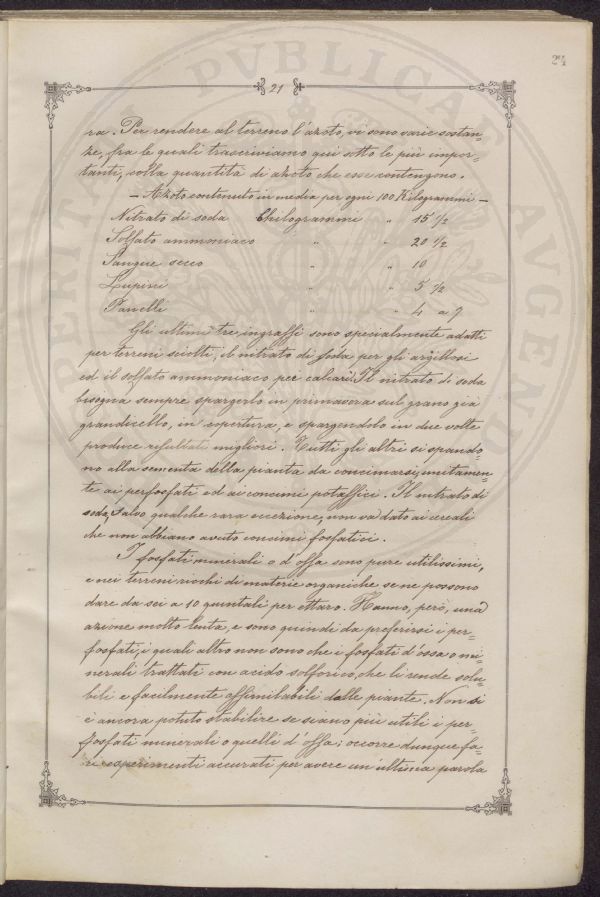 24
21
ra. Per rendere al terreno l'azoto, vi sono varie sostan=
ze, fra le quali trascriviamo qui sotto le più impor=
tanti, colla quantità di azoto che esse contengono.
- Azoto contenuto in media per ogni 100 Kilogrammi -
Nitrato di soda Chilogrammi " 15 1/2
Solfato ammoniaco " " 20 1/2
Sangue secco " " 10
Lupini " " 5 1/2
Panelli " " 4 a 7
Gli ultimi tre ingrassi sono specialmente adatti
per terreni sciolti; il nitrato di soda per gli argillosi
ed il solfato ammoniaco pei calcari. Il nitrato di soda
bisogna sempre spargerlo in primavera sul grano già
grandicello, in copertura, e spargendolo in due volte
produce risultati migliori. Tutti gli altri si spando=
no alla sementa della pianta da concimarsi, unitamen=
te ai perfosfati ed ai concimi potassici. Il nitrato di
soda, salvo qualche rara eccezione, non va dato ai cereali
che non abbiano avuto concimi fosfatici.
I fosfati minerali o d'ossa sono pure utilissimi,
e nei terreni ricchi di materie organiche se ne possono
dare da sei a 10 quintali per ettaro. Hanno, però, una
azione molto lenta, e sono quindi da preferirsi i per=
fosfati, i quali altro non sono che i fosfati d'ossa o mi=
nerali trattati con acido solforico, che li rende solu=
bili e facilmente assimilabili dalle piante. Non si
è ancora potuto stabilire se siano più utili i per=
fosfati minerali o quelli d'ossa; occorre dunque fa=
re esperimenti accurati per avere un'ultima parola
PVBLICAE
AVGEND